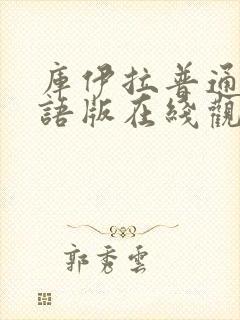 庫伊拉普通
語版在綫觀
郭秀雲